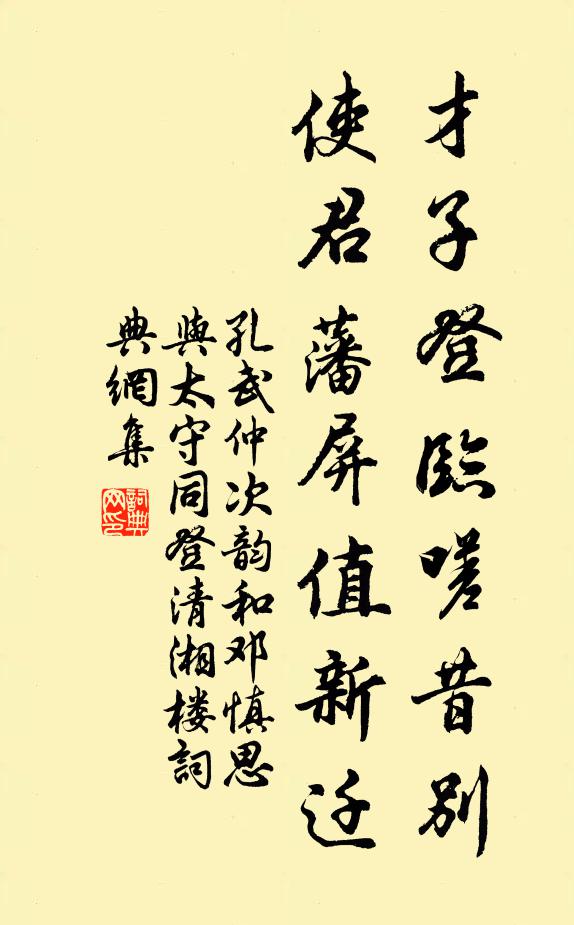 才子登临嗟昔别
使君藩屏值新迁
孔武仲次韵和邓慎思
與太守同登清湘楼詞
典網集
詞典
网印